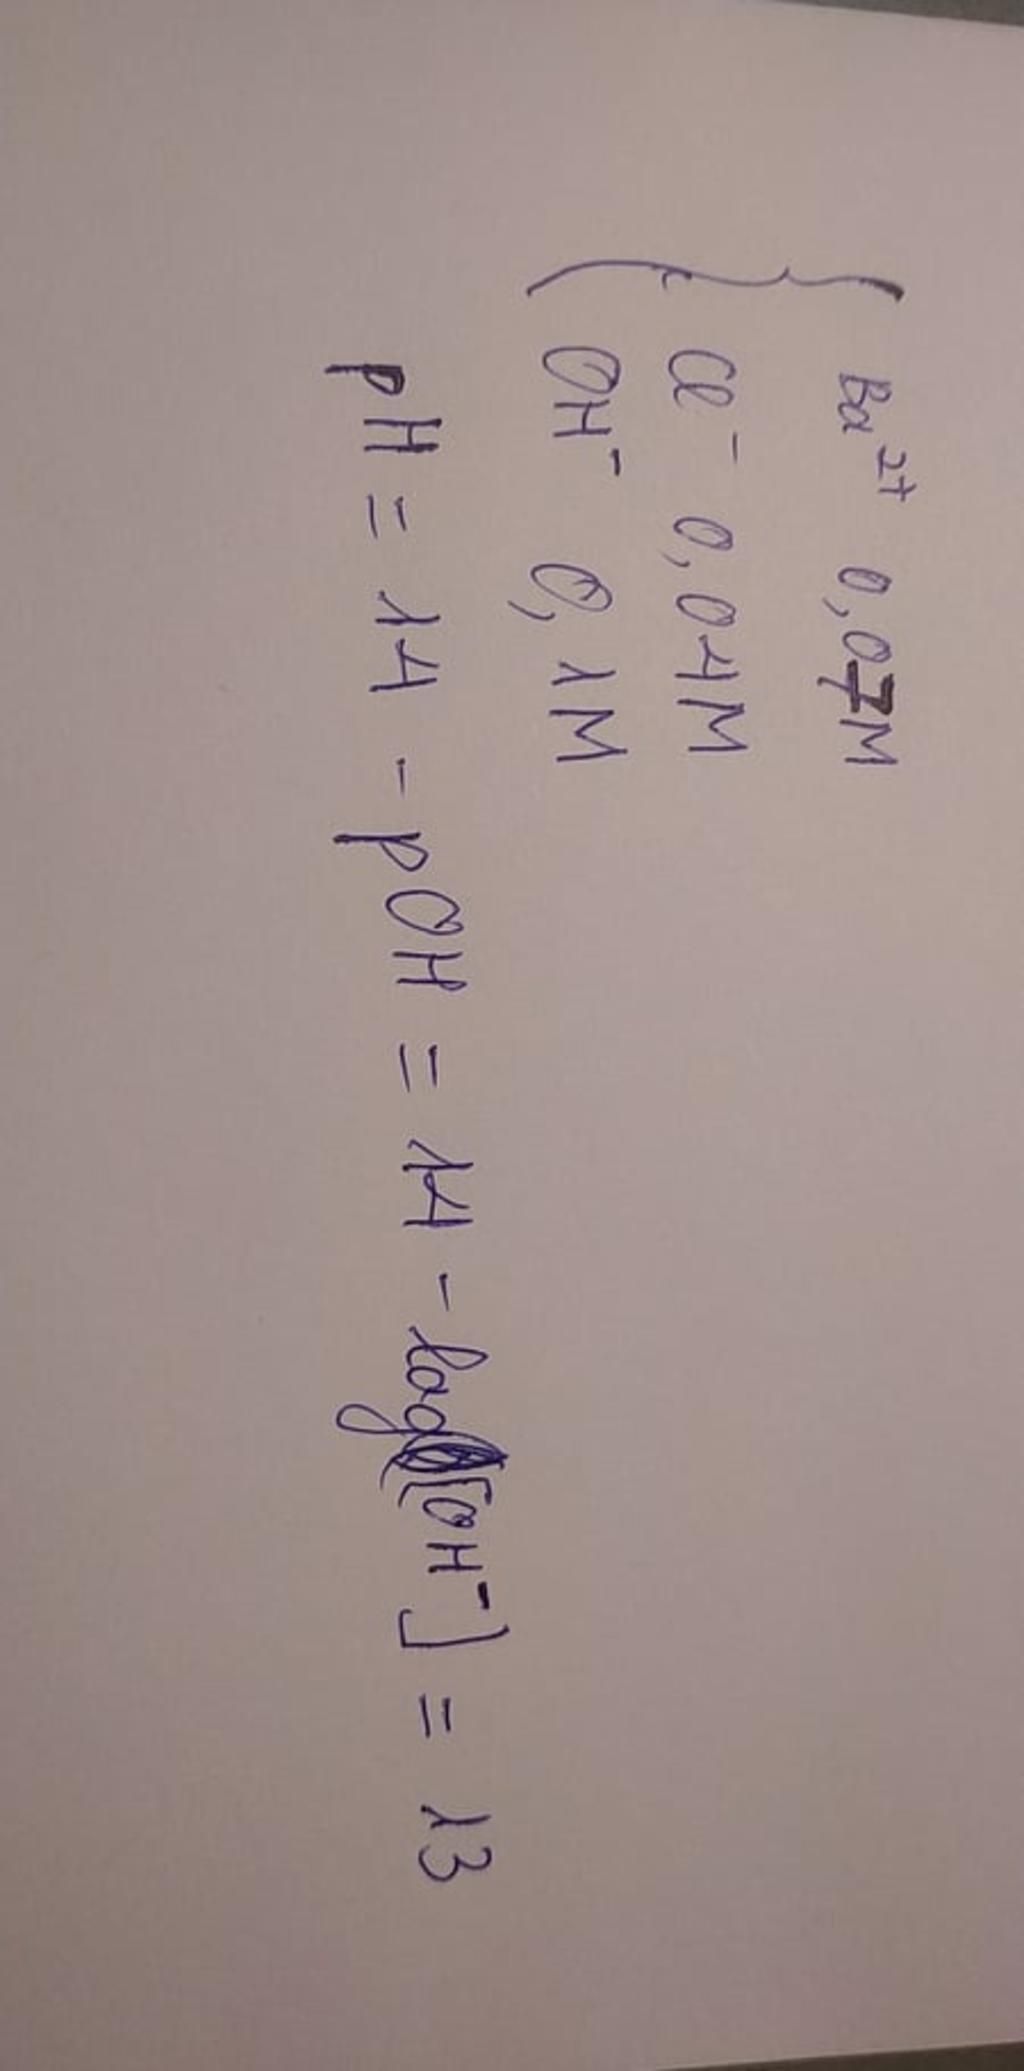 Ba²⁺ 0,07M
Cl⁻ 0,04M
OH⁻ 0,1M
pH = 14 - pOH = 14 - log[OH⁻] = 13